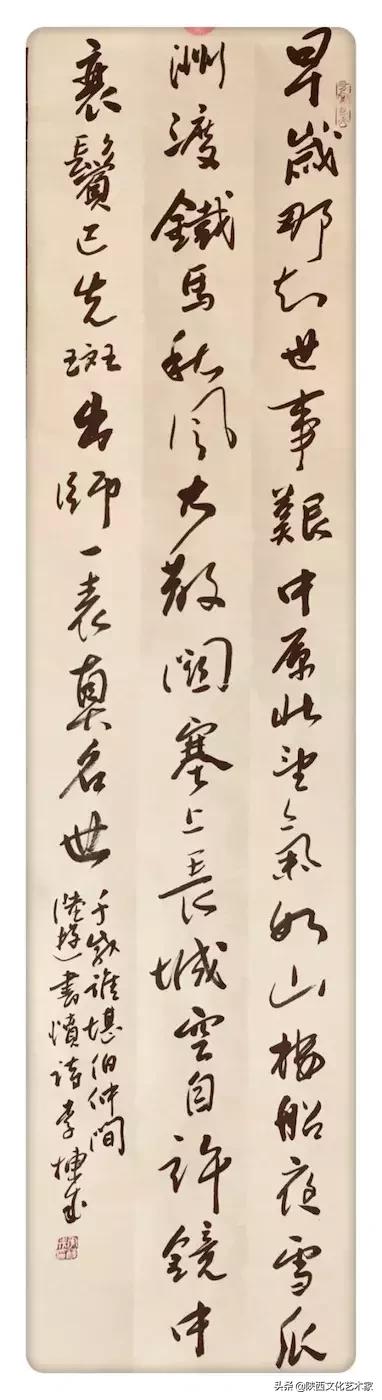 早歲那知世事艱中原北望氣如山樓船夜雪瓜
洲渡鐵馬秋風大散關塞上長城空自許鏡中
衰鬢已先斑出師一表真名世
千載誰堪伯仲間
陸游書憤詩李
头条 @陕西文化艺术家